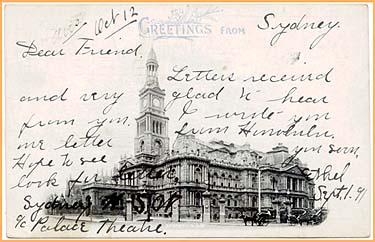 Oct 12
GREETINGS FROM
Sydney.
Dear Friend.
Letters received
and very glad to hear
from you. I write you
me letter from Honolulu.
Hope to see you soon,
look for letter, Ethel
Sydney Sept. 1.
c/o Palace Theatre.